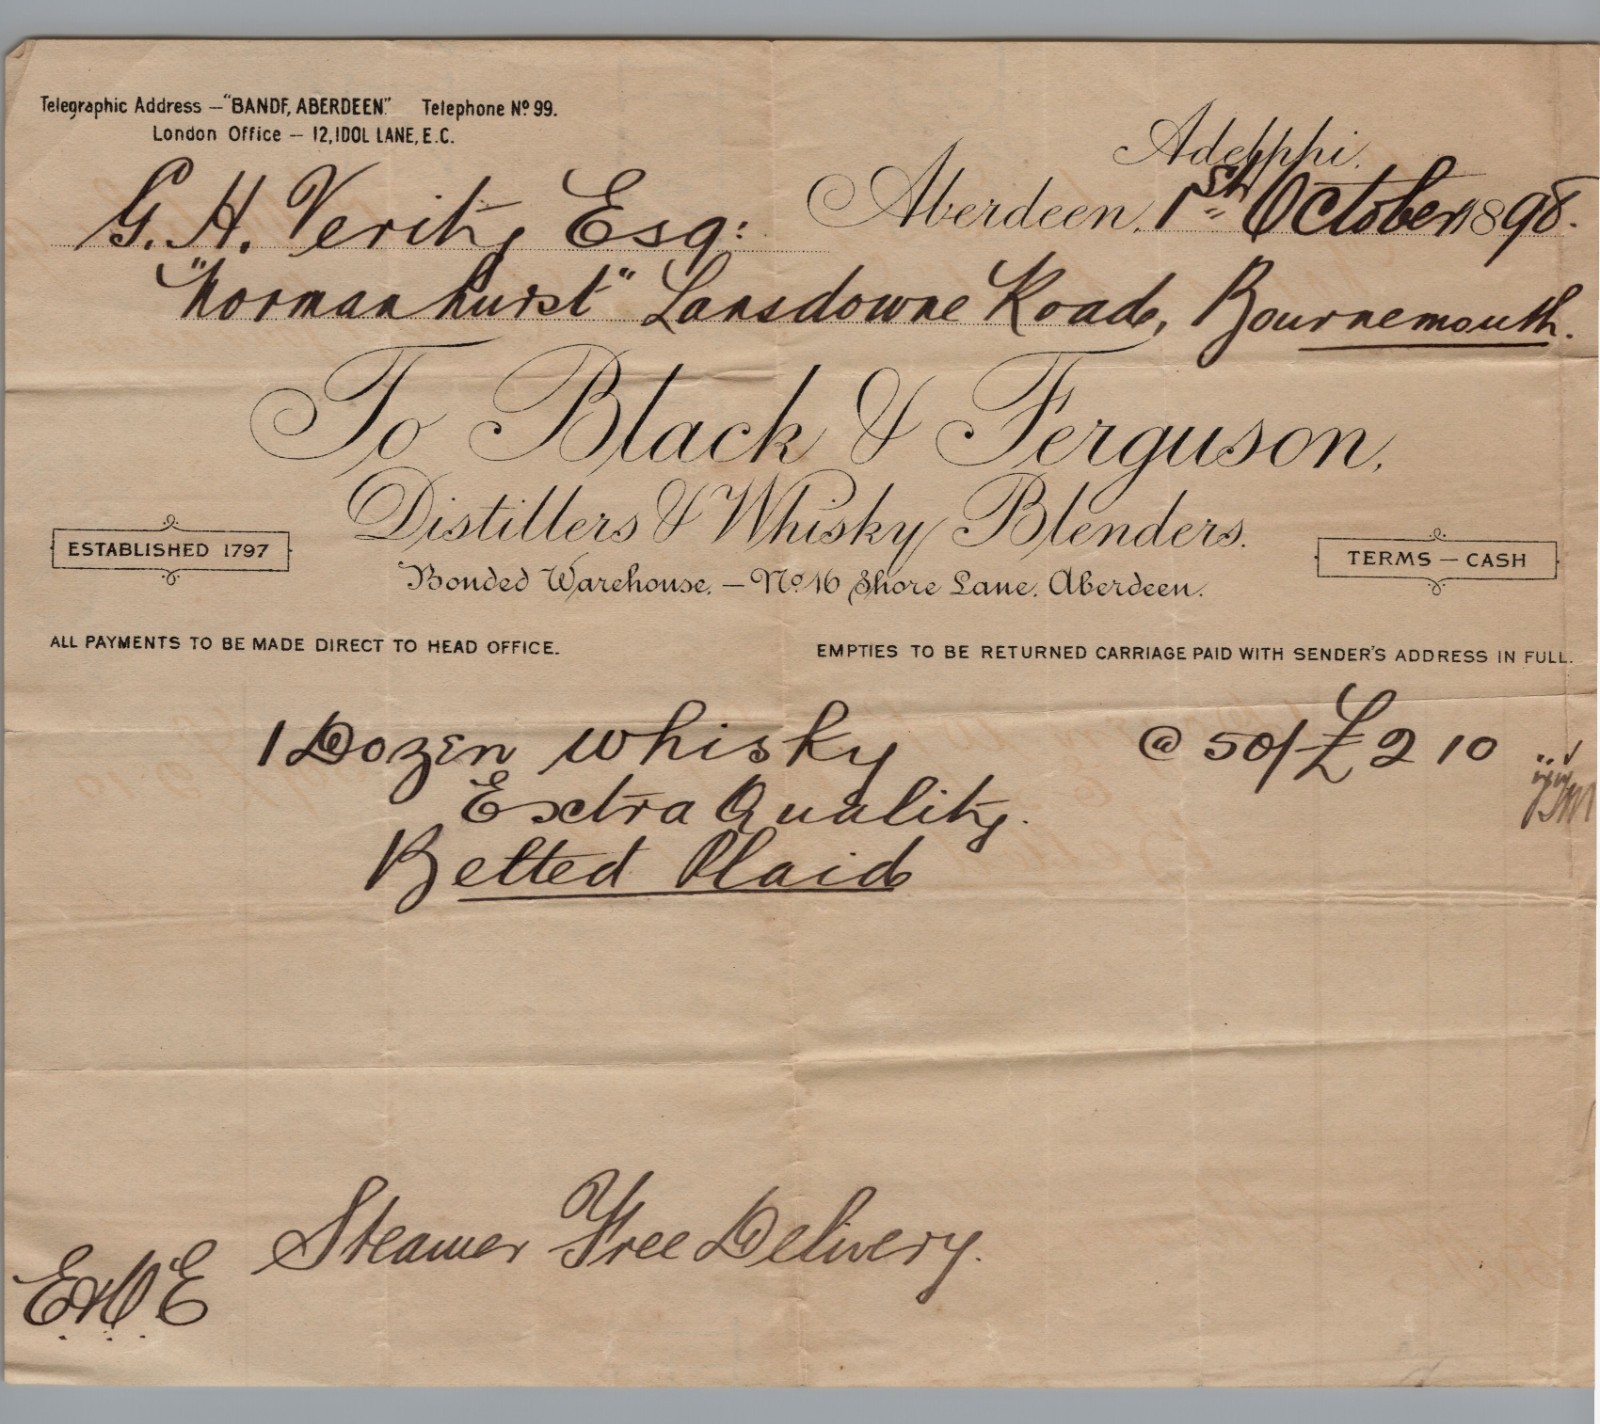 Telegraphic Address — "BANDF, ABERDEEN" Telephone No 99.
London Office — 12, IDOL LANE, E.C.
Adelphi.
Aberdeen, 1st October 1898.
G. H. Verity Esq:
"Normanhurst" Lansdowne Road, Bournemouth.
To Black & Ferguson,
Distillers & Whisky Blenders.
ESTABLISHED 1797
TERMS — CASH
Bonded Warehouse, — No 16 Shore Lane, Aberdeen.
ALL PAYMENTS TO BE MADE DIRECT TO HEAD OFFICE.
EMPTIES TO BE RETURNED CARRIAGE PAID WITH SENDER'S ADDRESS IN FULL.
1 Dozen Whisky @ 50/ £2 10 "
Extra Quality.
Belted Plaid
Steamer Free Delivery.
E & O E